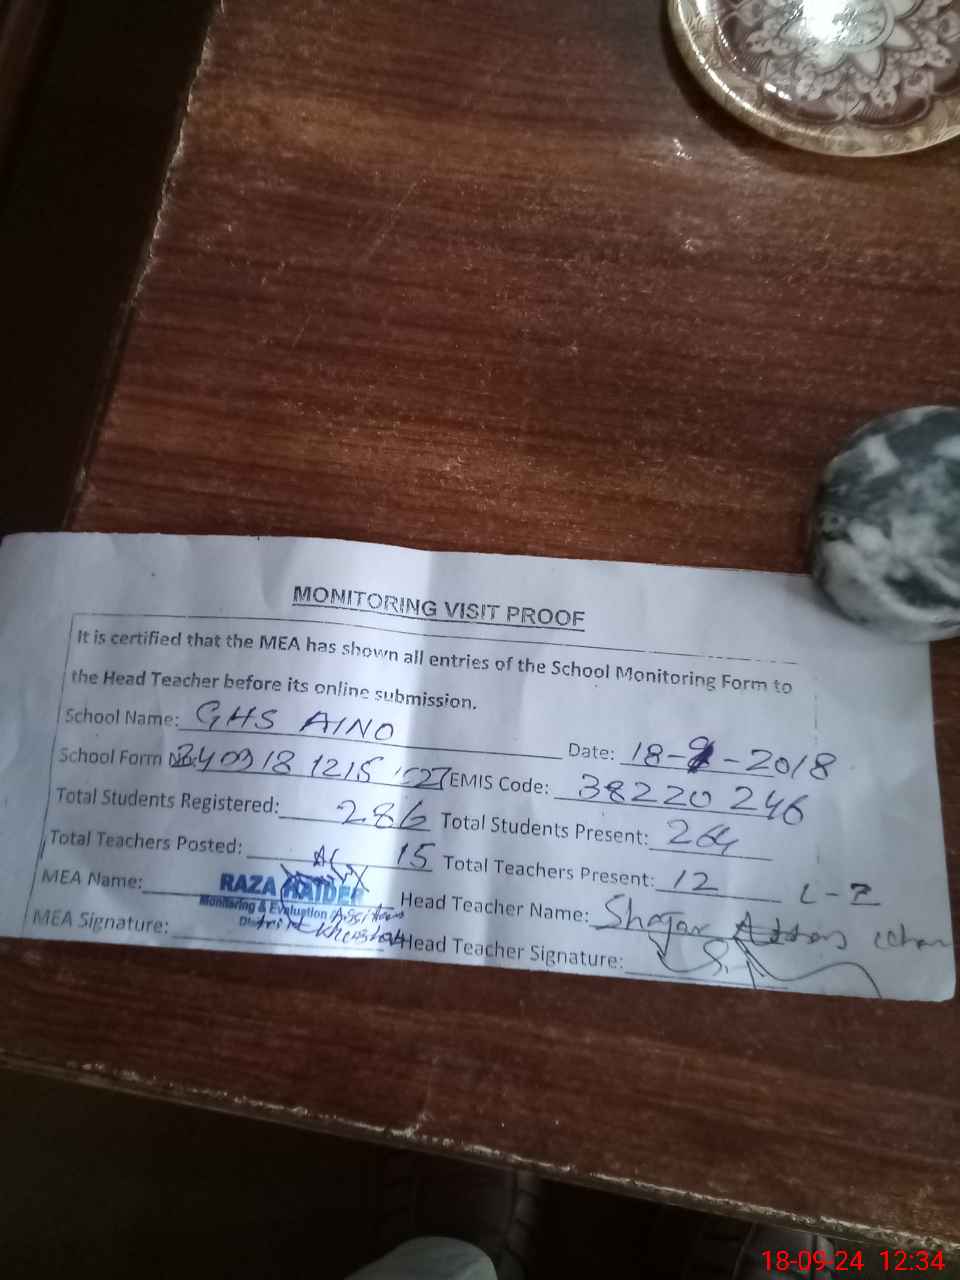 MONITORING VISIT PROOF
It is certified that the MEA has shown all entries of the School Monitoring Form to
the Head Teacher before its online submission.
School Name: GHS AINO Date: 18-9-2018
School Form EMIS Code: 38220 246
Total Students Registered: 286 Total Students Present: 264
Total Teachers Posted: 15 Total Teachers Present: 12 L-2
MEA Name: RAZA HAIDER Head Teacher Name:
Monitoring & Evaluation
MEA Signature: Head Teacher Signature:
18-09-24 12:34